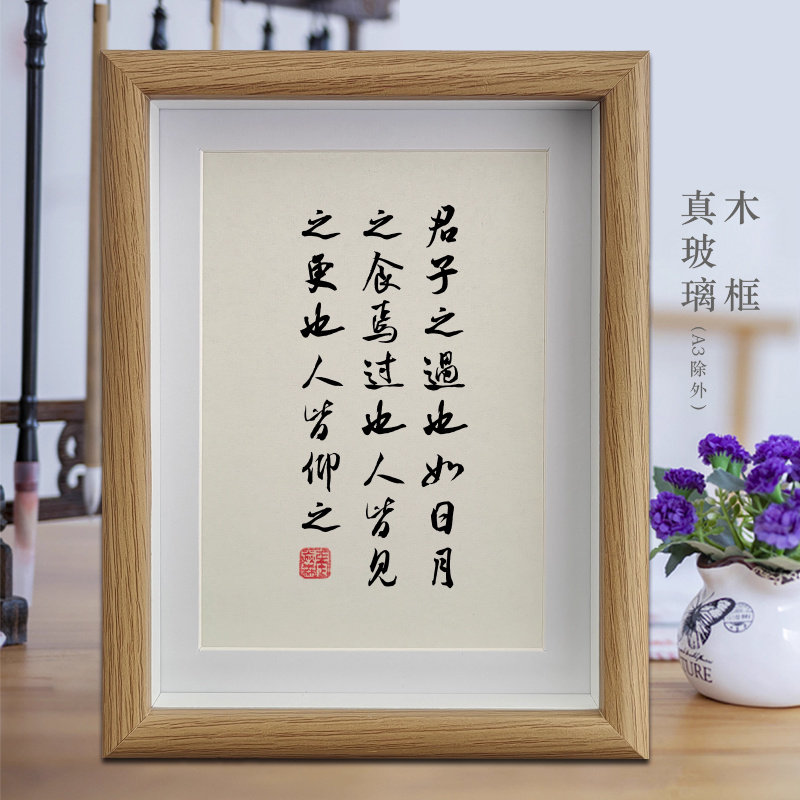 君子之過也如日月
之食焉过也人皆見
之更也人皆仰之
木框
真玻璃
(A3除外)